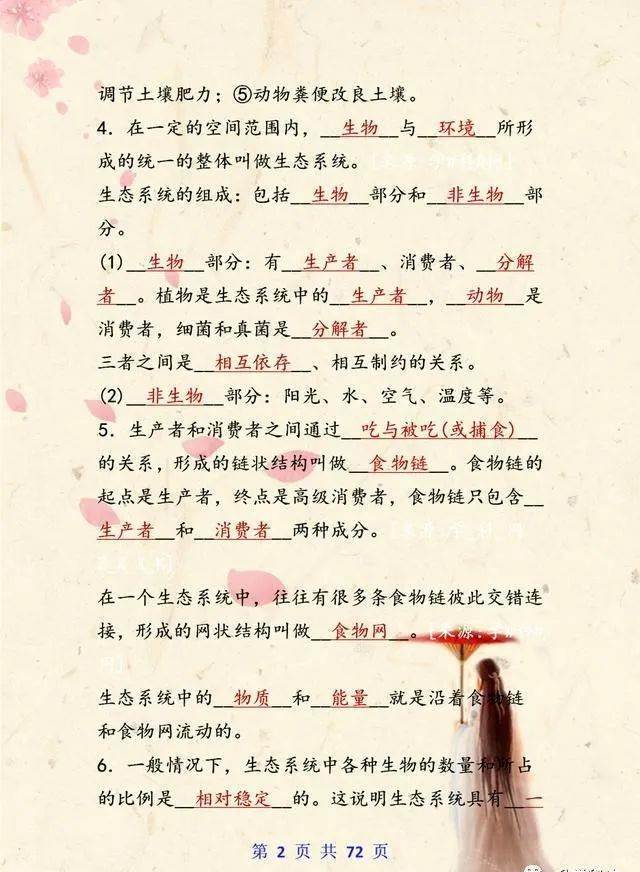 调节土壤肥力；⑤动物粪便改良土壤。
4．在一定的空间范围内，__生物__与__环境__所形
成的统一的整体叫做生态系统。
生态系统的组成：包括__生物__部分和__非生物__部
分。
(1)__生物__部分：有__生产者__、消费者、__分解
者__。植物是生态系统中的__生产者__，__动物__是
消费者，细菌和真菌是__分解者__。
三者之间是__相互依存__、相互制约的关系。
(2)__非生物__部分：阳光、水、空气、温度等。
5．生产者和消费者之间通过__吃与被吃(或捕食)__
的关系，形成的链状结构叫做__食物链__。食物链的
起点是生产者，终点是高级消费者，食物链只包含__
生产者__和__消费者__两种成分。
在一个生态系统中，往往有很多条食物链彼此交错连
接，形成的网状结构叫做__食物网__。
生态系统中的__物质__和__能量__就是沿着食物链
和食物网流动的。
6．一般情况下，生态系统中各种生物的数量和所占
的比例是__相对稳定__的。这说明生态系统具有__一
第 2 页 共 72 页